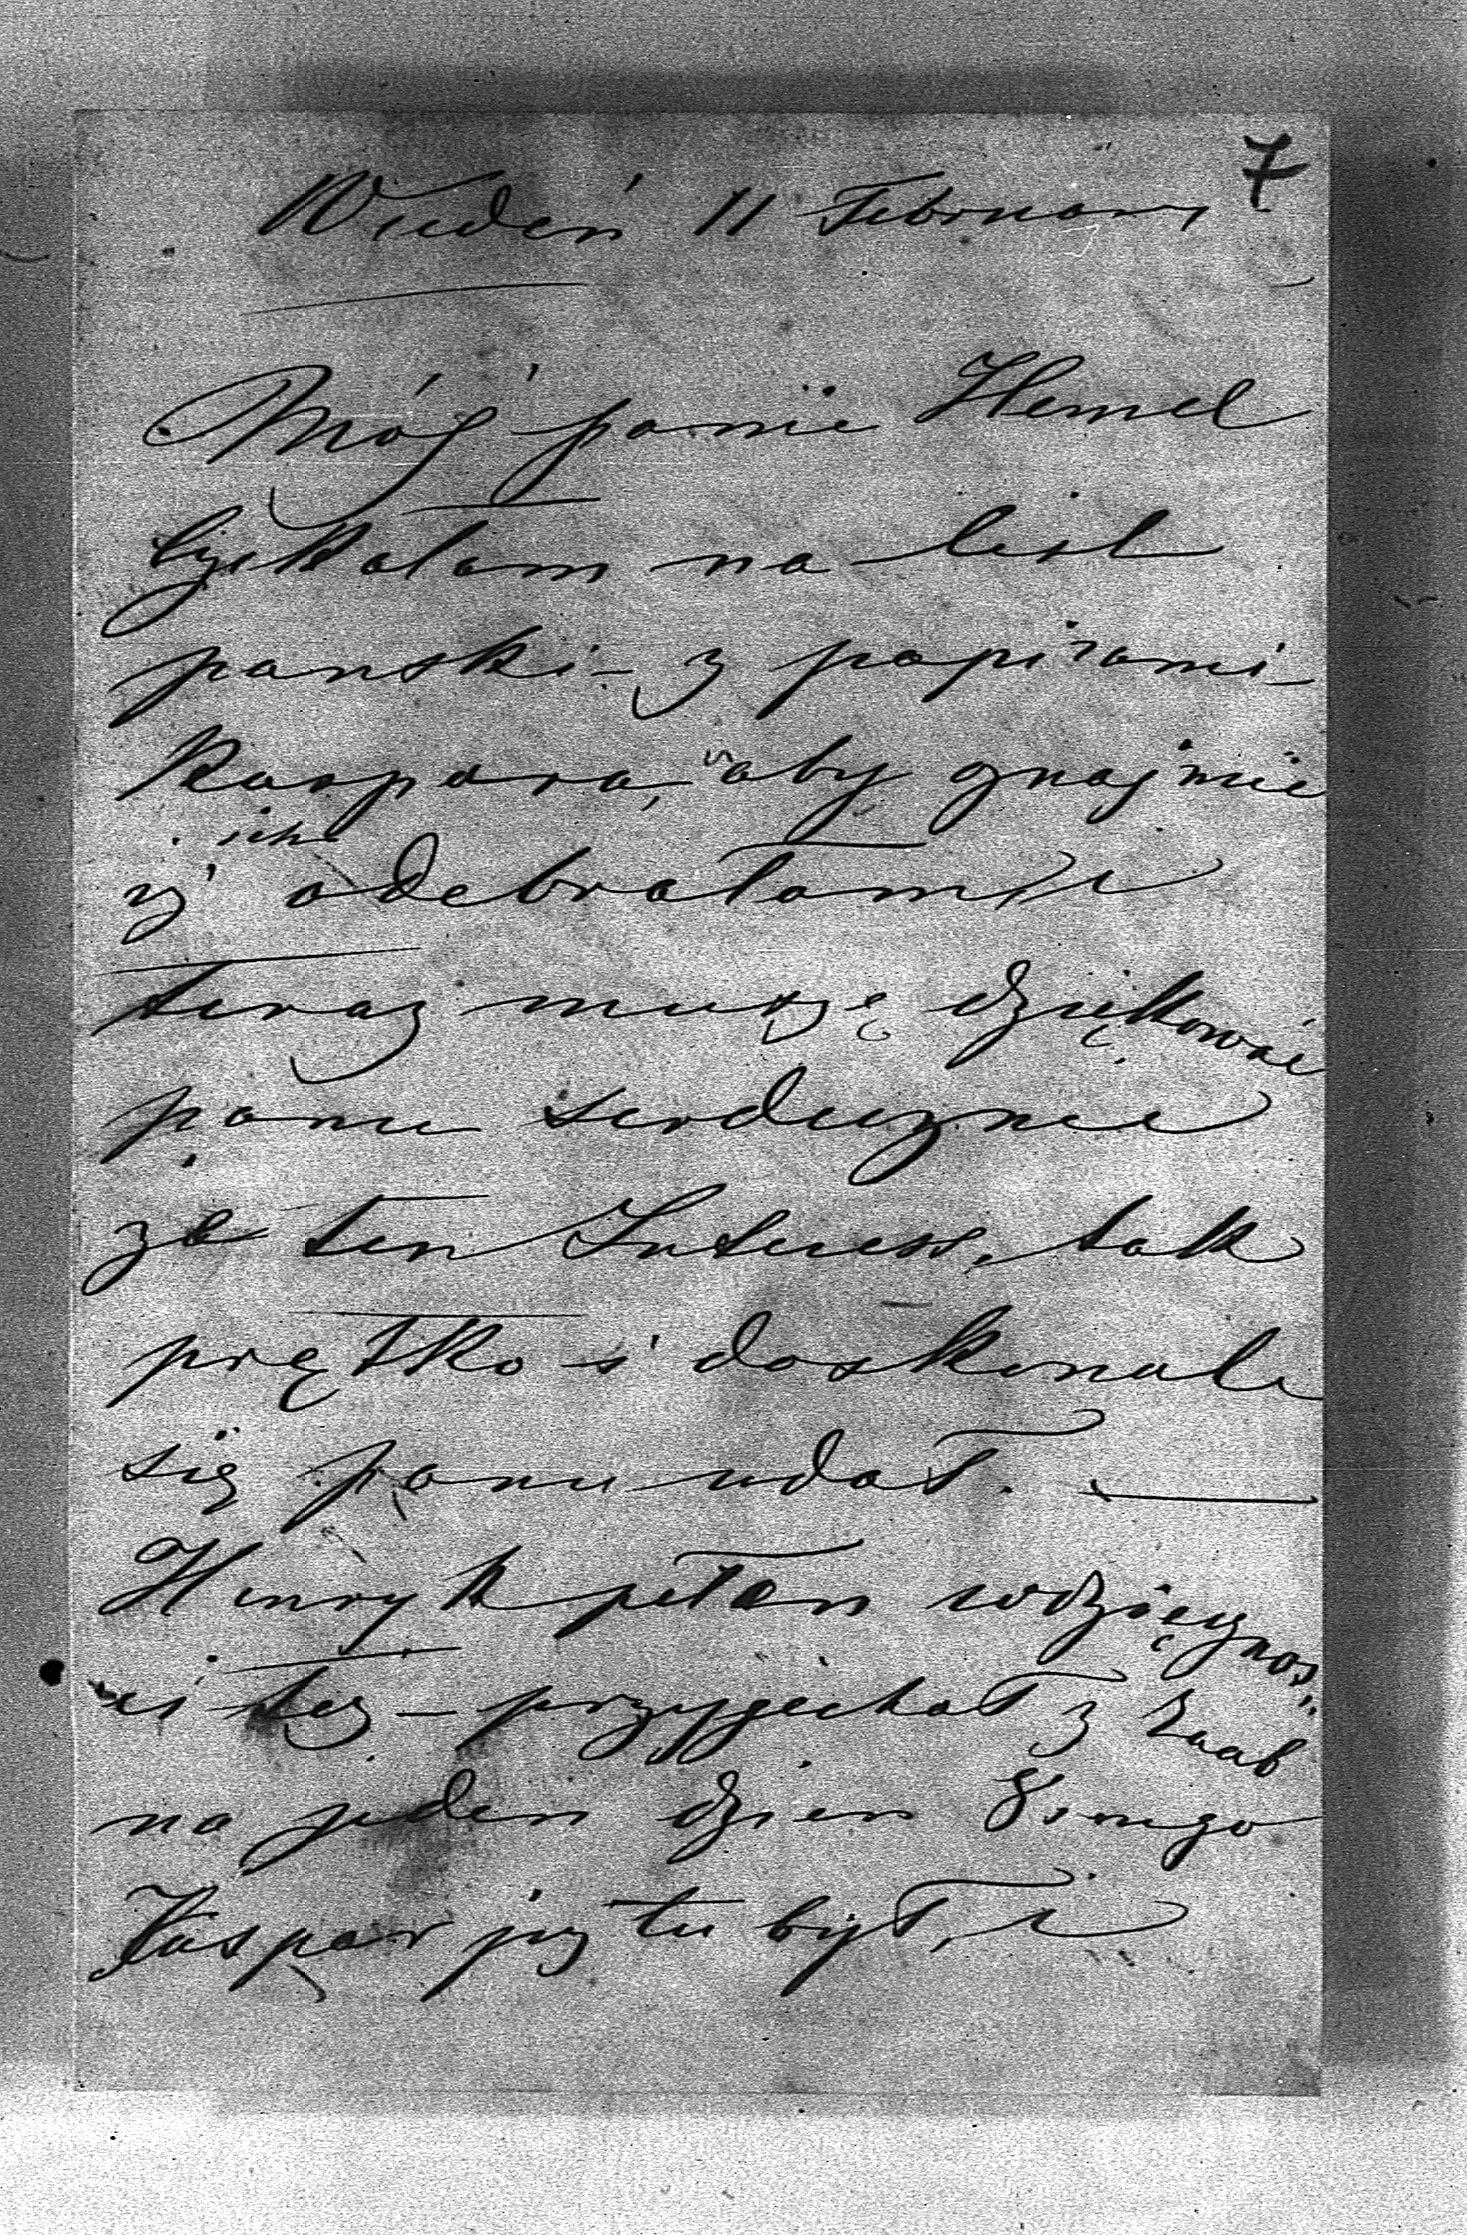 7
Wiedeń 11 Februar
Mój panie Hemel
czekalam na list
panski z papirami
Kaspara, aby znajmie
iż ich odebrałam, i
teraz muszę dziękować
panu serdecznie
za ten Interess, tak
prętko i doskonale
się panu udał.
Henryk pełen wdzięcznoś
ci też przyjechał z Raab
na jeden dzien 8smego
Kaspar juz tu był, i